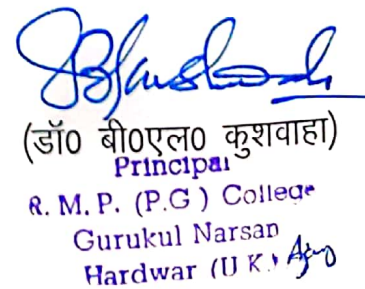 (डॉ0 बी0एल0 कुशवाहा)
Principal
R. M. P. (P.G ) College
Gurukul Narsan
Hardwar (U K.)